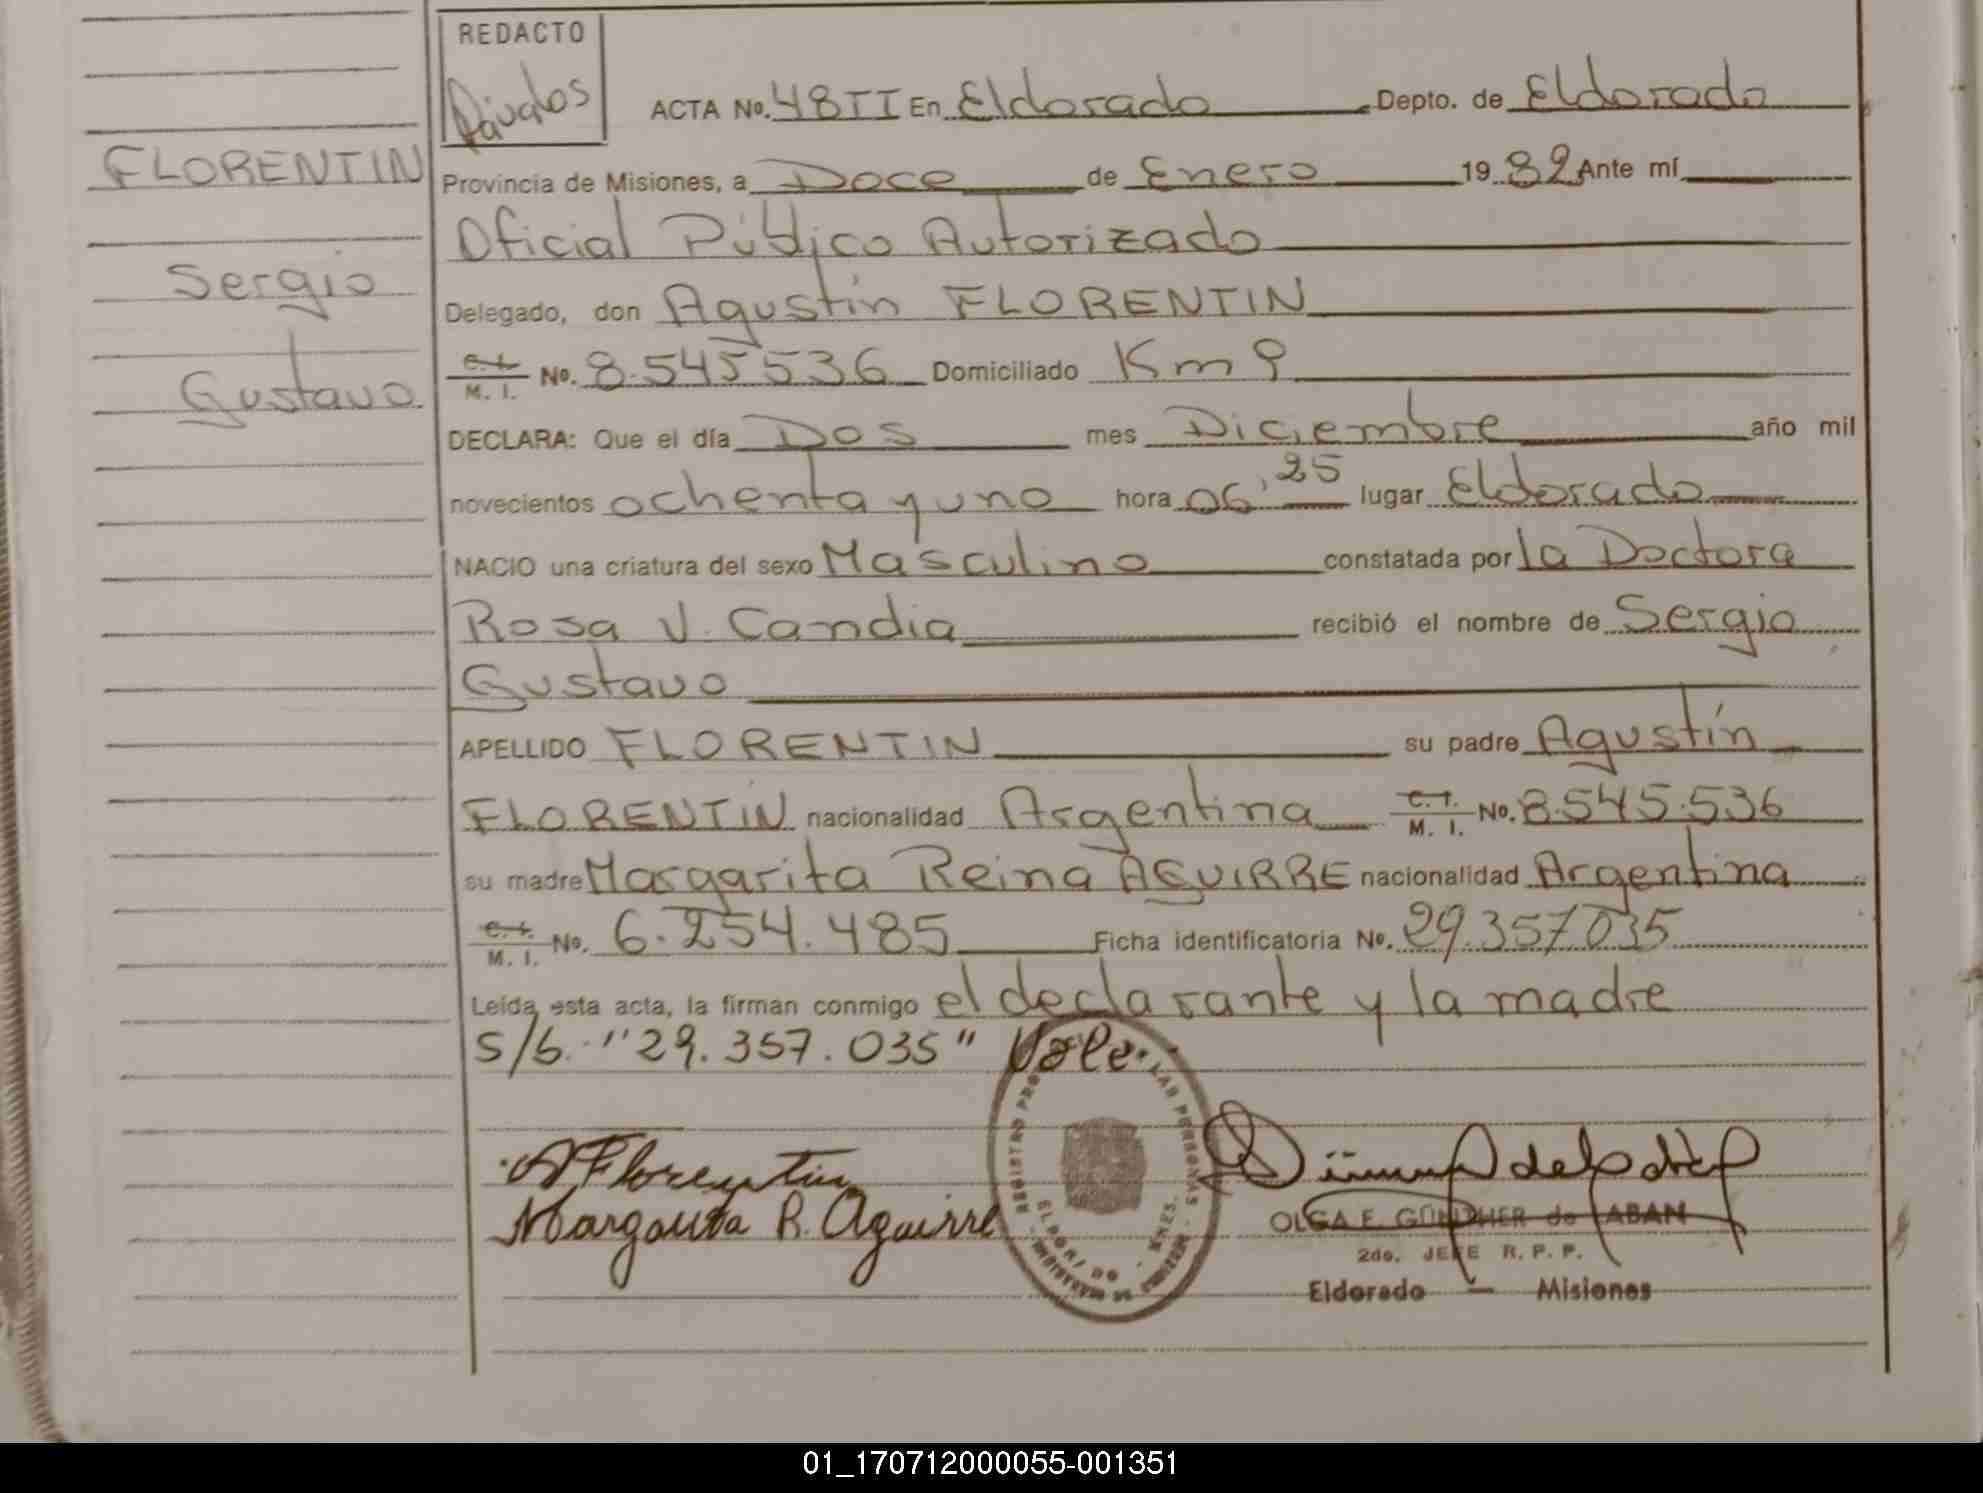 REDACTO
Dávalos
ACTA No. 48 II En Eldorado Depto. de Eldorado
FLORENTIN
Provincia de Misiones, a Doce de Enero 1982 Ante mí
Oficial Público Autorizado
Sergio
Delegado, don Agustín FLORENTIN
Gustavo
C. I. M. I. No. 8.545536 Domiciliado Km 9
DECLARA: Que el día Dos mes Diciembre año mil
novecientos ochenta y uno hora 06,25 lugar Eldorado
NACIO una criatura del sexo Masculino constatada por la Doctora
Rosa V. Candia recibió el nombre de Sergio
Gustavo
APELLIDO FLORENTIN su padre Agustín
FLORENTIN nacionalidad Argentina C. I. M. I. No. 8.545.536
su madre Margarita Reina AGUIRRE nacionalidad Argentina
C. I. M. I. No. 6.254.485 Ficha identificatoria No. 29.357035
Leída esta acta, la firman conmigo el declarante y la madre
S/b. "29.357.035" Vale.
A Florentin
Margarita R. Aguirre
OLGA E. GUNDHER de
2do. JEFE R. P. P.
Eldorado — Misiones
01_170712000055-001351